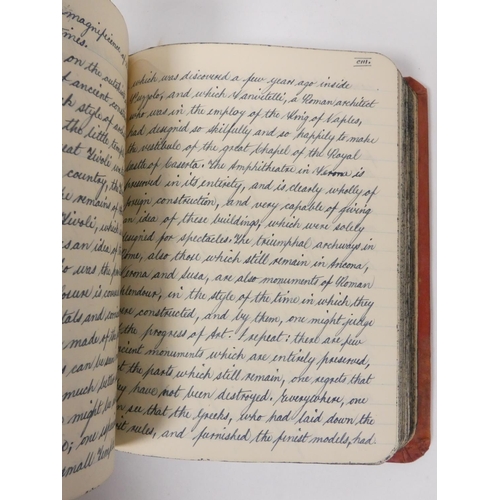 magnificence of
times.
on the outski
d ancient
ch style of
the little temp
eat Tivoli
country, th
he remains of
Tivoli, which
san idea of
o was the
losure is
tals and
made of the
s can be
much
might be
o; one
small Temp
cui.
which was discovered a few years ago inside
Puzzolo; and which Vanvitelli, a Roman architect
who was in the employ of the King of Naples,
had designed so skilfully and so happily to make
the vestibule of the great Chapel of the Royal
Castle of Caserta. The Amphitheatre in Verona is
preserved in its entirety, and is clearly wholly of
foreign construction, and very capable of giving
an idea of these buildings, which were solely
designed for spectacles. The triumphal archways in
Rome, also those which still remain in Ancona,
Verona and Susa, are also monuments of Roman
splendour, in the style of the time in which they
were constructed, and by them, one might judge
the progress of Art. I repeat: there are few
ancient monuments which are entirely preserved,
but the parts which still remain, one regrets that
they have not been destroyed. Everywhere, one
can see that the Greeks, who had laid down the
rules, and furnished the finest models, had